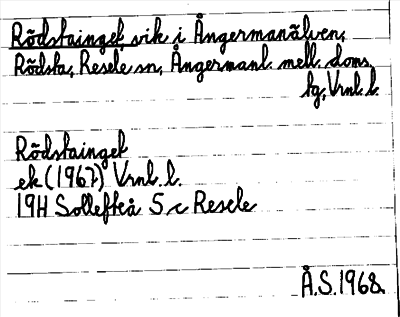 Rödstainget, vik i Ångermanälven,
Rödsta, Resele sn, Ångermanl. mell. doms.
tg, Vrnl. l.
Rödstainget
ek (1967) Vrnl. l.
19H Sollefteå 5 c Resele
Å.S. 1968.